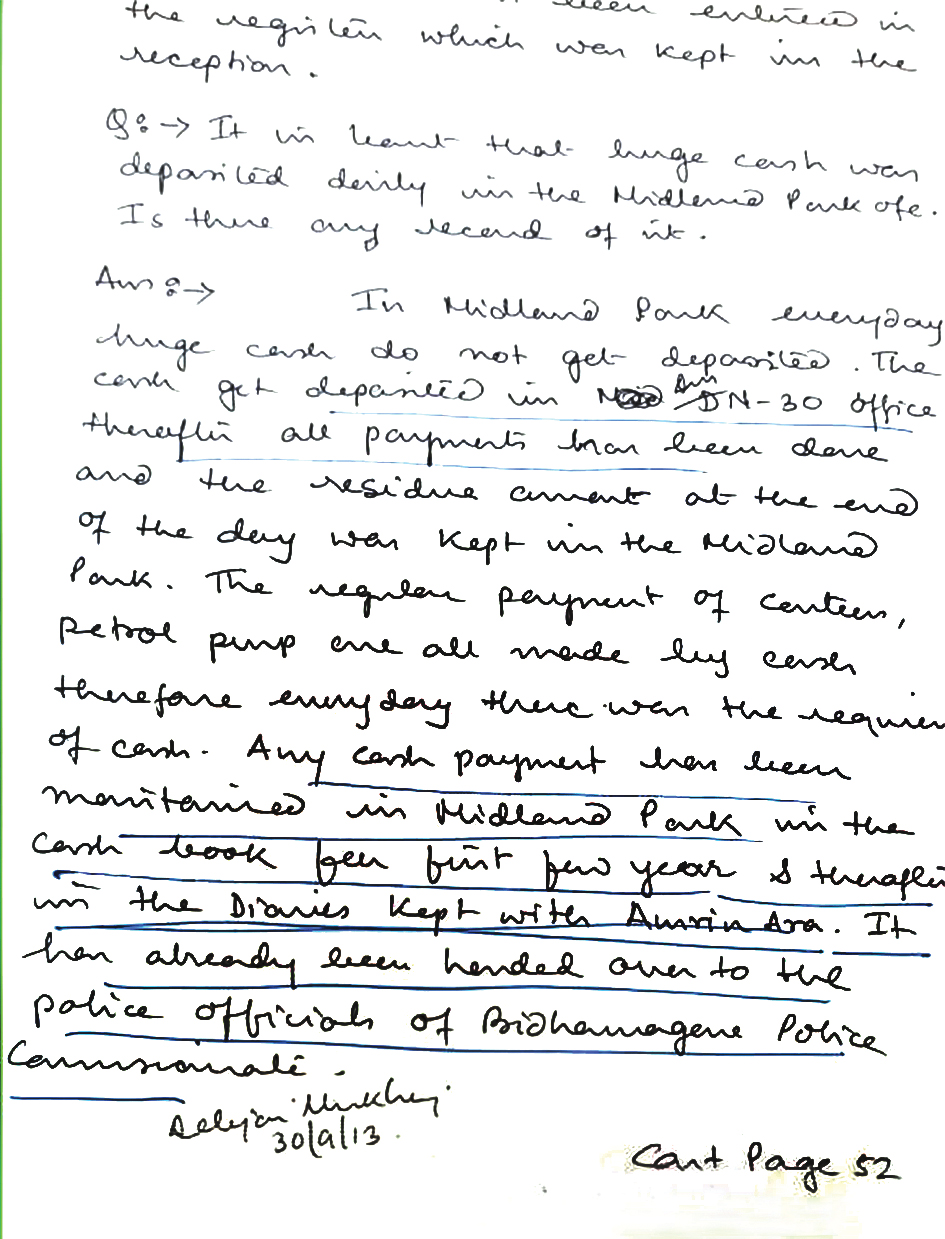 been entered in
the register which was kept in the
reception.
Q:→ It is learnt that huge cash was
deposited daily in the Midland Park ofc.
Is there any record of it.
Ans:→ In Midland Park everyday
huge cash do not get deposited. The
cash get deposited in DN-30 office
thereafter all payments has been done
and the residue amount at the end
of the day was kept in the Midland
Park. The regular payment of canteen,
petrol pump are all made by cash
therefore everyday there was the requirem
of cash. Any cash payment has been
maintained in Midland Park in the
cash book for first few year & thereafter
in the Diaries kept with Amrin Ara. It
has already been handed over to the
police officials of Bidhannagar Police
Commissionate.
30/9/13.
Cont Page 52